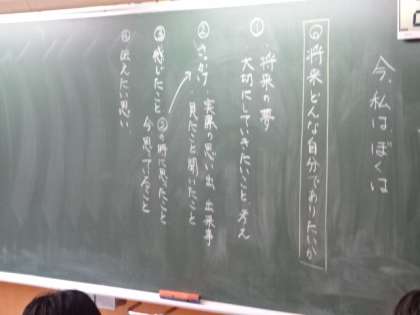 今、私はぼくは
◎将来どんな自分でありたいか
① ・将来の夢
大切にしていきたいこと、考え
② きっかけ・実際の思い出、出来事
・見たこと聞いたこと
③ 感じたこと ②の時に思ったこと
今思っていること
④ 伝えたい思い